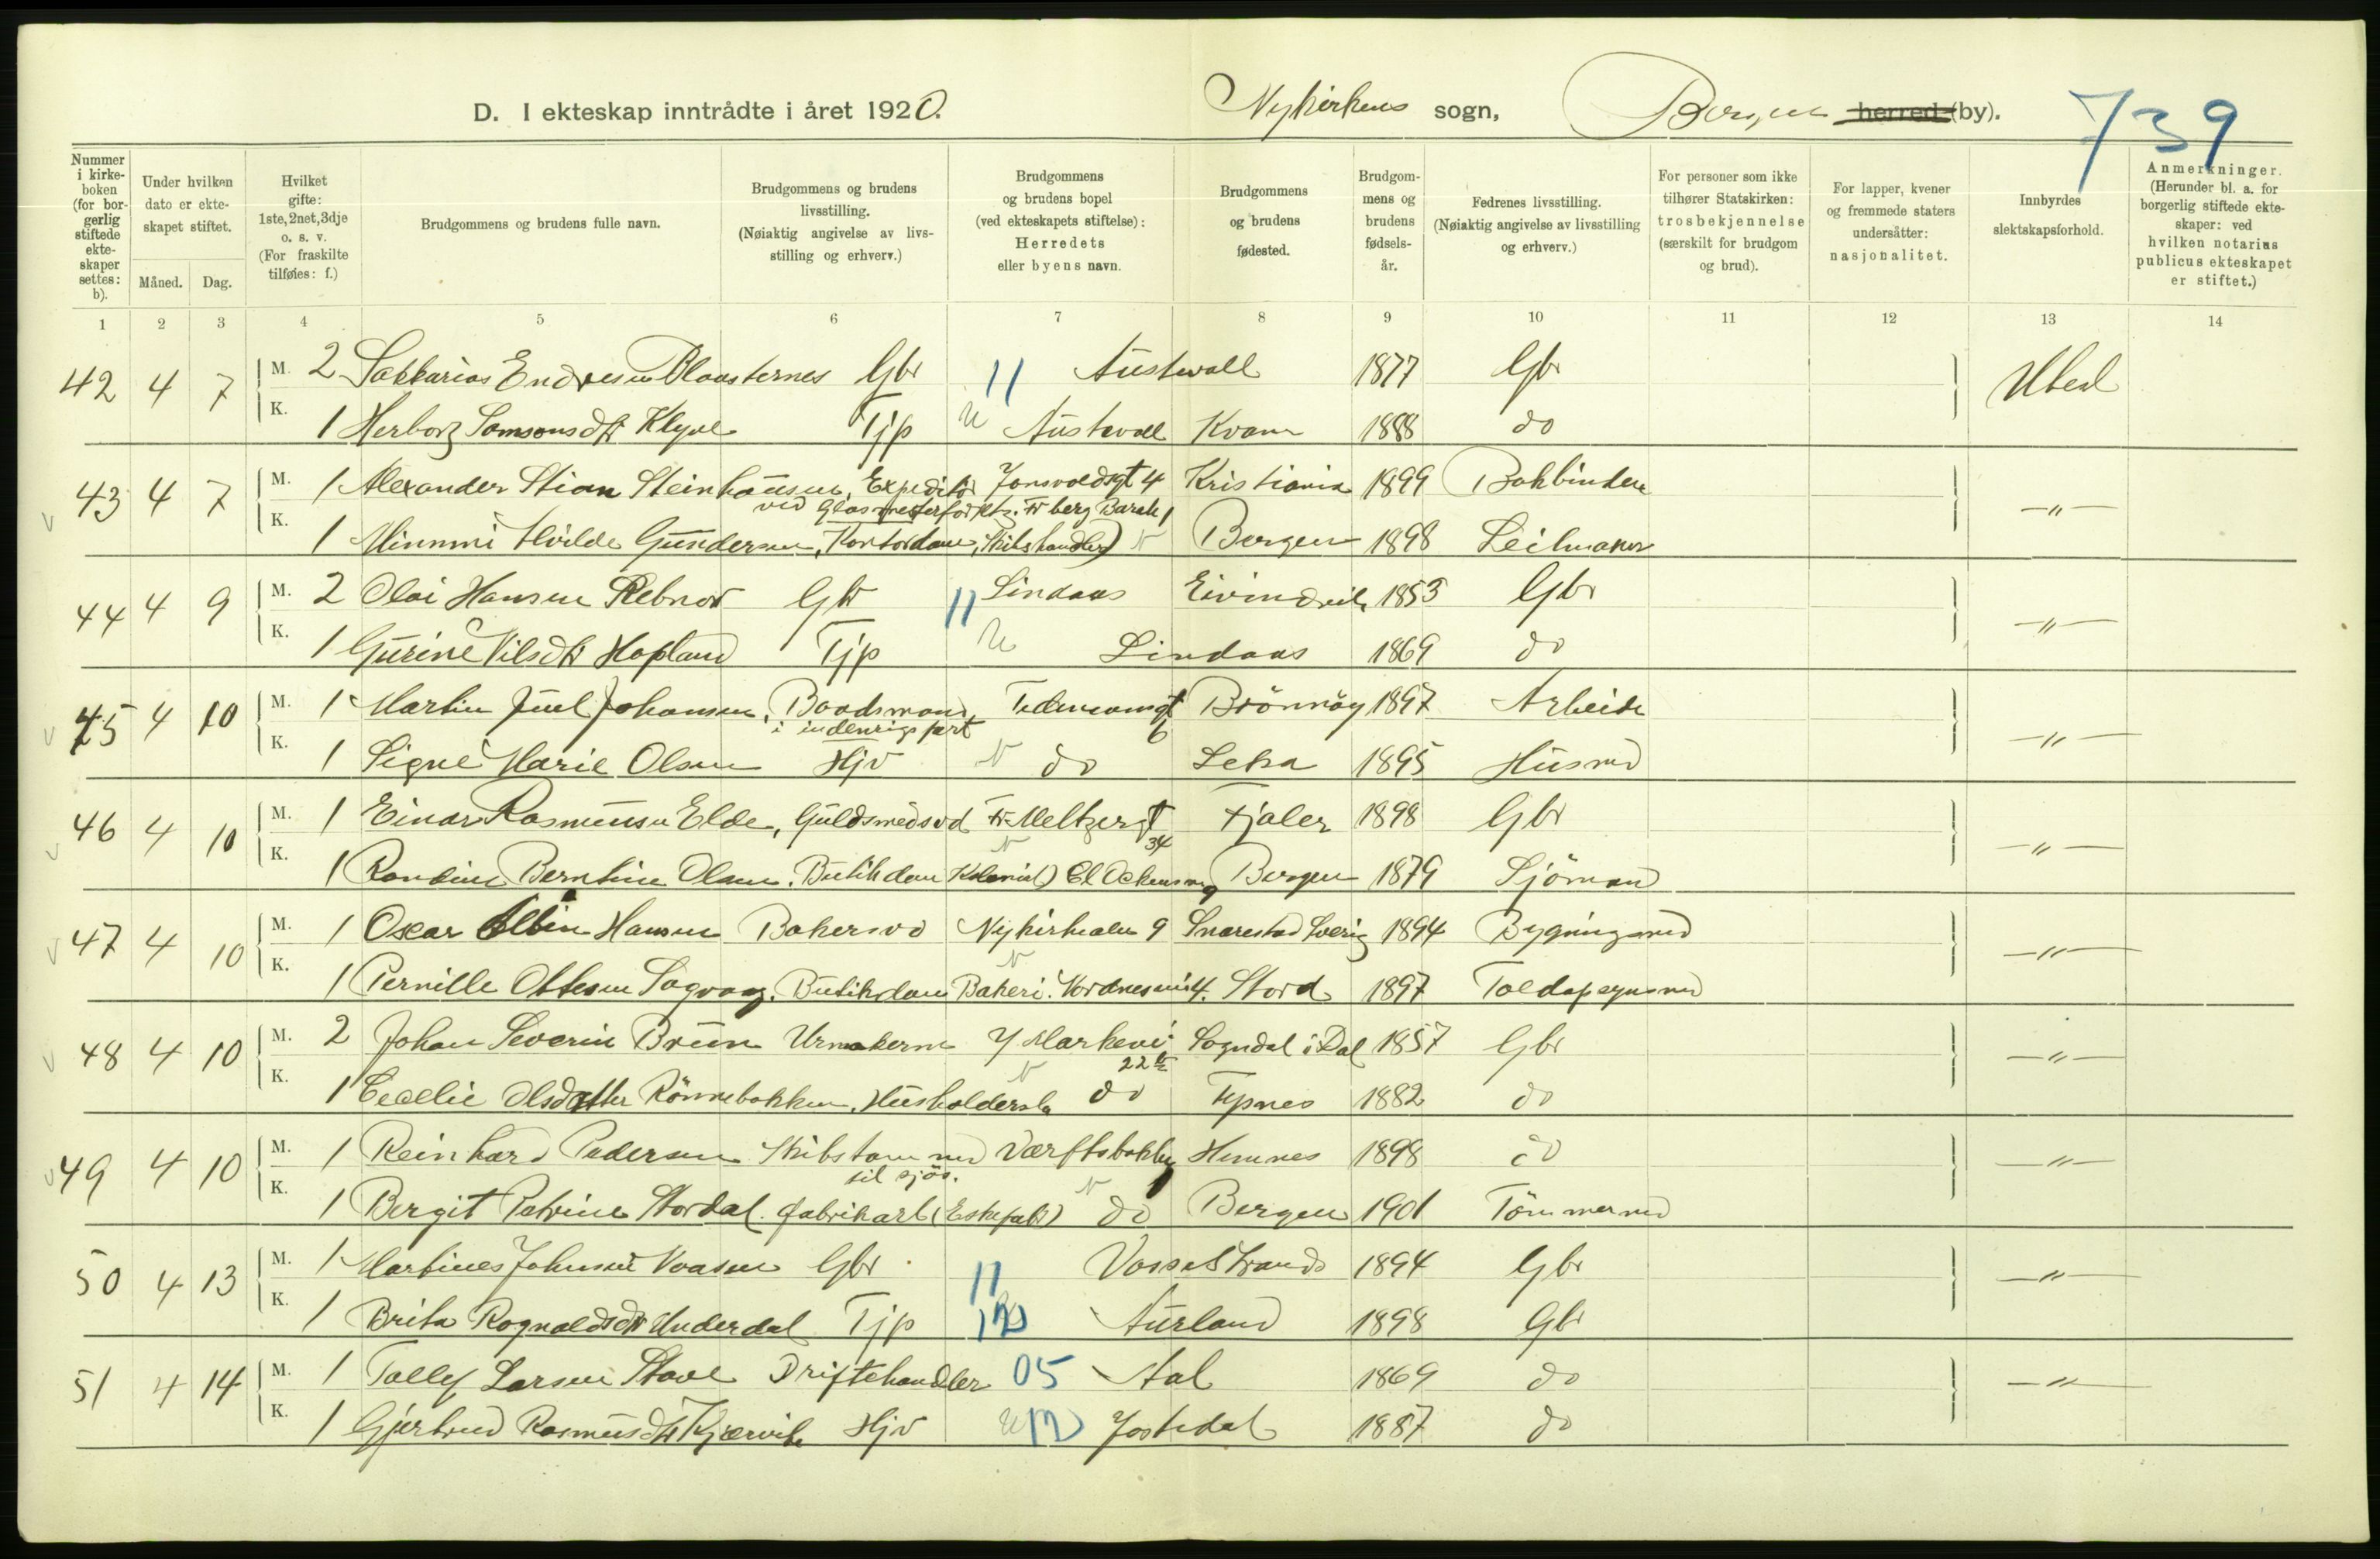 D. I ekteskap inntrådte i året 1920. Nykirkens sogn, Bergen herred (by). 739
Nummer i kirkeboken (for borgerlig stiftede ekteskaper settes: b).
Under hvilken dato er ekteskapet stiftet.
Måned. Dag.
Hvilket gifte: 1ste, 2net, 3dje o. s. v. (For fraskilte tilføies: f.)
Brudgommens og brudens fulle navn.
Brudgommens og brudens livsstilling. (Nøiaktig angivelse av livsstilling og erhverv.)
Brudgommens og brudens bopel (ved ekteskapets stiftelse): Herredets eller byens navn.
Brudgommens og brudens fødested.
Brudgommens og brudens fødselsår.
Fedrenes livsstilling. (Nøiaktig angivelse av livsstilling og erhverv.)
For personer som ikke tilhører Statskirken: trosbekjennelse (særskilt for brudgom og brud).
For lapper, kvener og fremmede staters undersåtter: nasjonalitet.
Innbyrdes slektskapsforhold.
Anmerkninger. (Herunder bl. a. for borgerlig stiftede ekteskaper: ved hvilken notarius publicus ekteskapet er stiftet.)
1 2 3 4 5 6 7 8 9 10 11 12 13 14
42 4 7 M. 2 Sakkarias Endresen Gbr 11 Austevoll 1877 Gbr Ubesl
K. 1 Herborg Samsonsdtr Klyve Tjp u Austevoll Kvam 1888 do
43 4 7 M. 1 Alexander Stian Steinhausen, Expeditør Jonsvoldsgt 4 Kristiania 1899 Bokbinder —"—
ved Glasmesterforretn.
K. 1 Minmmi Hvilde Gundersen, Kontordame Bergen 1898 Seilmaker
44 4 9 M. 2 Olai Hansen Rebnor Gbr 11 Lindaas Eivindvik 1853 Gbr —"—
K. 1 Gurine Nilsdtr Hopland Tjp u Lindaas 1869 do
45 4 10 M. 1 Martin Juel Johansen, Baadsmand Brönnöy 1897 Arbeider —"—
i indenrigsfart 6
K. 1 Signe Marie Olsen Hjv do Leka 1895 Husmd
46 4 10 M. 1 Einar Rasmussen Elde, Guldsmedsvd Fr Meltzersgt 34 Fjaler 1898 Gbr —"—
K. 1 Randine Berntine Olsen. Butikdame Kolonial) Bergen 1879 Sjömand
47 4 10 M. 1 Oscar Albin Hansen Bakersvd Nykirkealm 9 Snarestad Sverig 1894 Bygningsmd —"—
K. 1 Pernille Ottesen Sagvaag. Butikdame Bakeri. Stord 1897 Toldopsynsmd
48 4 10 M. 2 Johan Severin Bruun Urmakerm Y Markevei 22 b Sogndal i Dal 1857 Gbr —"—
K. 1 Cecelie Olsdatter Rönnebakken, Husholderske do 1882 do
49 4 10 M. 1 Reinhard Pedersen Skibstömmermd Værftsbakken 1 Hemnes 1898 do —"—
til sjös.
K. 1 Bergit Petrine Stordal. fabrikarb (Eskefabr) do Bergen 1901 Tömmermd
50 4 13 M. 1 Martines Johnsen Gbr 11 Vossestrand 1894 Gbr —"—
K. 1 Brita Rognaldsdtr Underdal Tjp 12 Aurland 1898 Gbr
51 4 14 M. 1 Tollef Larsen Stave Driftehandler 05 Aal 1869 do —"—
K. 1 Gjertrud Rasmusdtr Kjærvik Hjv u 12 Jostedal 1887 do